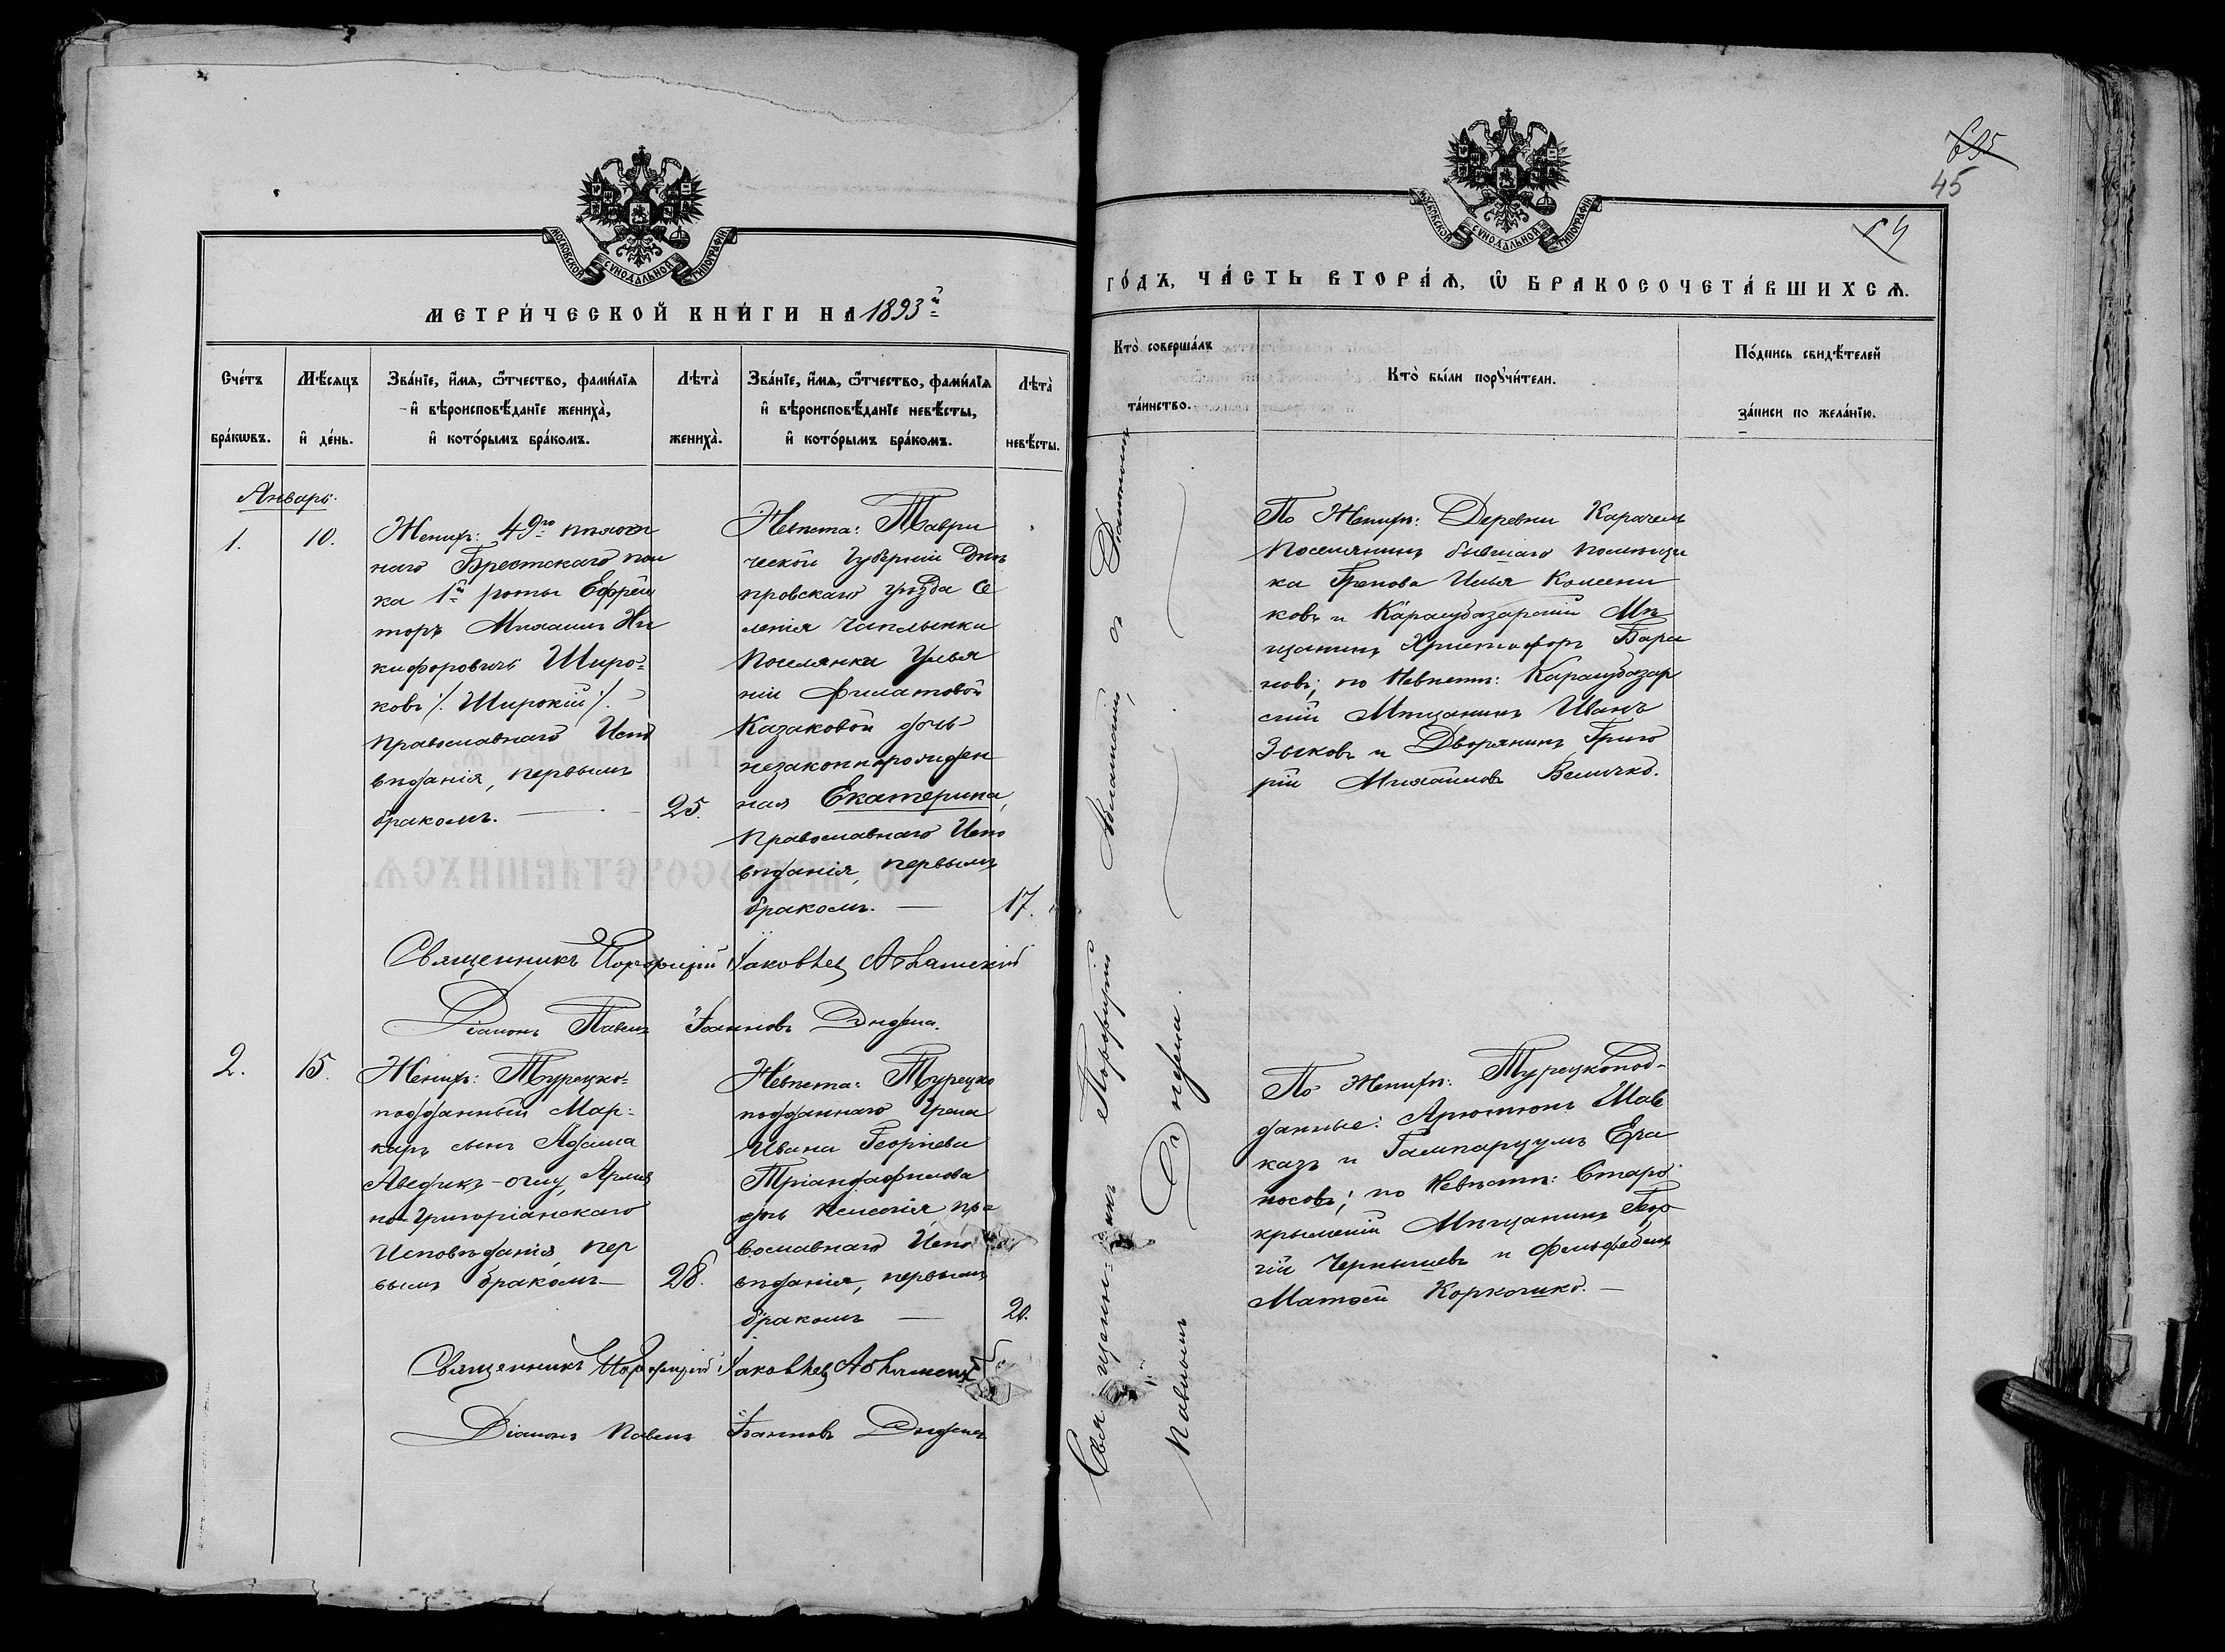 695
45
54
МОСКОВСКОЙ СѴНОДАЛЬНОЙ ТИПОГРАФІИ
МЕТРИ́ЧЕСКОЙ КНИ́ГИ НА 1893й
Сче́тъ бра́кѡвъ.
Мѣ́сяцъ и҆ де́нь.
Зва́нїе, и҆́мѧ, ѻ҆́тчество, фами́лїѧ
и҆ вѣроисповѣ́данїе жениха̀,
и҆ кото́рымъ бра́комъ.
Лѣта̀ жениха̀.
Зва́нїе, и҆́мѧ, ѻ҆́тчество, фами́лїѧ
и҆ вѣроисповѣ́данїе невѣ́сты,
и҆ кото́рымъ бра́комъ.
Лѣта̀ невѣ́сты.
Январь.
1.
10.
Женихъ: 49го пѣхот
наго Брестскаго пол
ка 1й роты Ефрей
торъ Михаилъ Ни
кифоровичъ Широ=
ковъ /. Широкій /.
Православнаго Испо
вѣданія, первымъ
бракомъ.
25.
Невѣста: Таври
ческой Губерніи Днѣ
провскаго уѣзда Се
ленія Чаплынки
Поселянки Улья
ніи Филатовой
Казаковой дочь
незаконнорожден
ная Екатерина,
Православнаго Испо
вѣданія, первымъ
бракомъ.
17.
Священникъ Порфирій Яковлев
Діаконъ Павелъ Іоанновъ
2.
15.
Женихъ: Турецко=
подданный Мар=
каръ сынъ Адама
Аведикъ-оглу, Армя
но-Григоріанскаго
Исповѣданія, пер
вымъ бракомъ
28.
Невѣста: Турецко
подданнаго Грека
Ивана Георгіева
Тріандафилова
дочь Келесія пра
вославнаго Испо
вѣданія, первымъ
бракомъ
20.
Священникъ Порфирій Яковлев
Діаконъ Павелъ Іоанновъ
МОСКОВСКОЙ СѴНОДАЛЬНОЙ ТИПОГРАФІИ
ГО́ДЪ, ЧА́СТЬ ВТОРА́Ѧ, Ѡ҆ БРАКОСОЧЕТА́ВШИХСѦ.
Кто̀ соверша́лъ та́инство.
Кто̀ бы́ли порꙋчи́тели.
По́дпись свидѣ́телей
за́писи по жела́нїю.
Священникъ Порфирій съ Діакономъ
Павломъ
По Женихѣ: Деревни
Поселянинъ бывшаго помѣщи
ка Грекова Илья Колесни
ковъ и Карасубазарскій Мѣ
щанинъ Христофоръ Бари
новъ; по Невѣстѣ: Карасубазар
скій Мѣщанинъ Иванъ
Зыковъ и Дворянинъ Григо
рій Михайловъ Величко.
По Женихѣ: Турецкопод-
данные: Арютюнъ Мав
казъ и Гампарцумъ Ега
носовъ; по Невѣстѣ: Старо
крымскій Мѣщанинъ Геор
гій Чернышевъ и Фельдфебель
Матвей Коркошко.